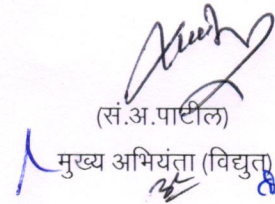 (सं.अ.पाटील)
मुख्य अभियंता (विद्युत)